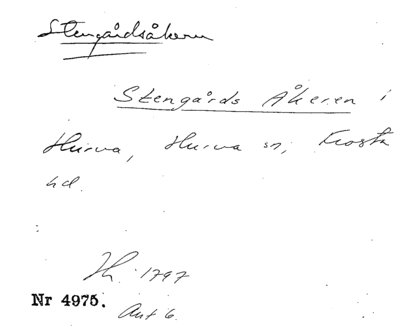 Stengårdsåkern
Stengårds Åkeren i
Hurva, Hurva sn, Frosta
hd.
Nr 4975.
1797
Akt 6.